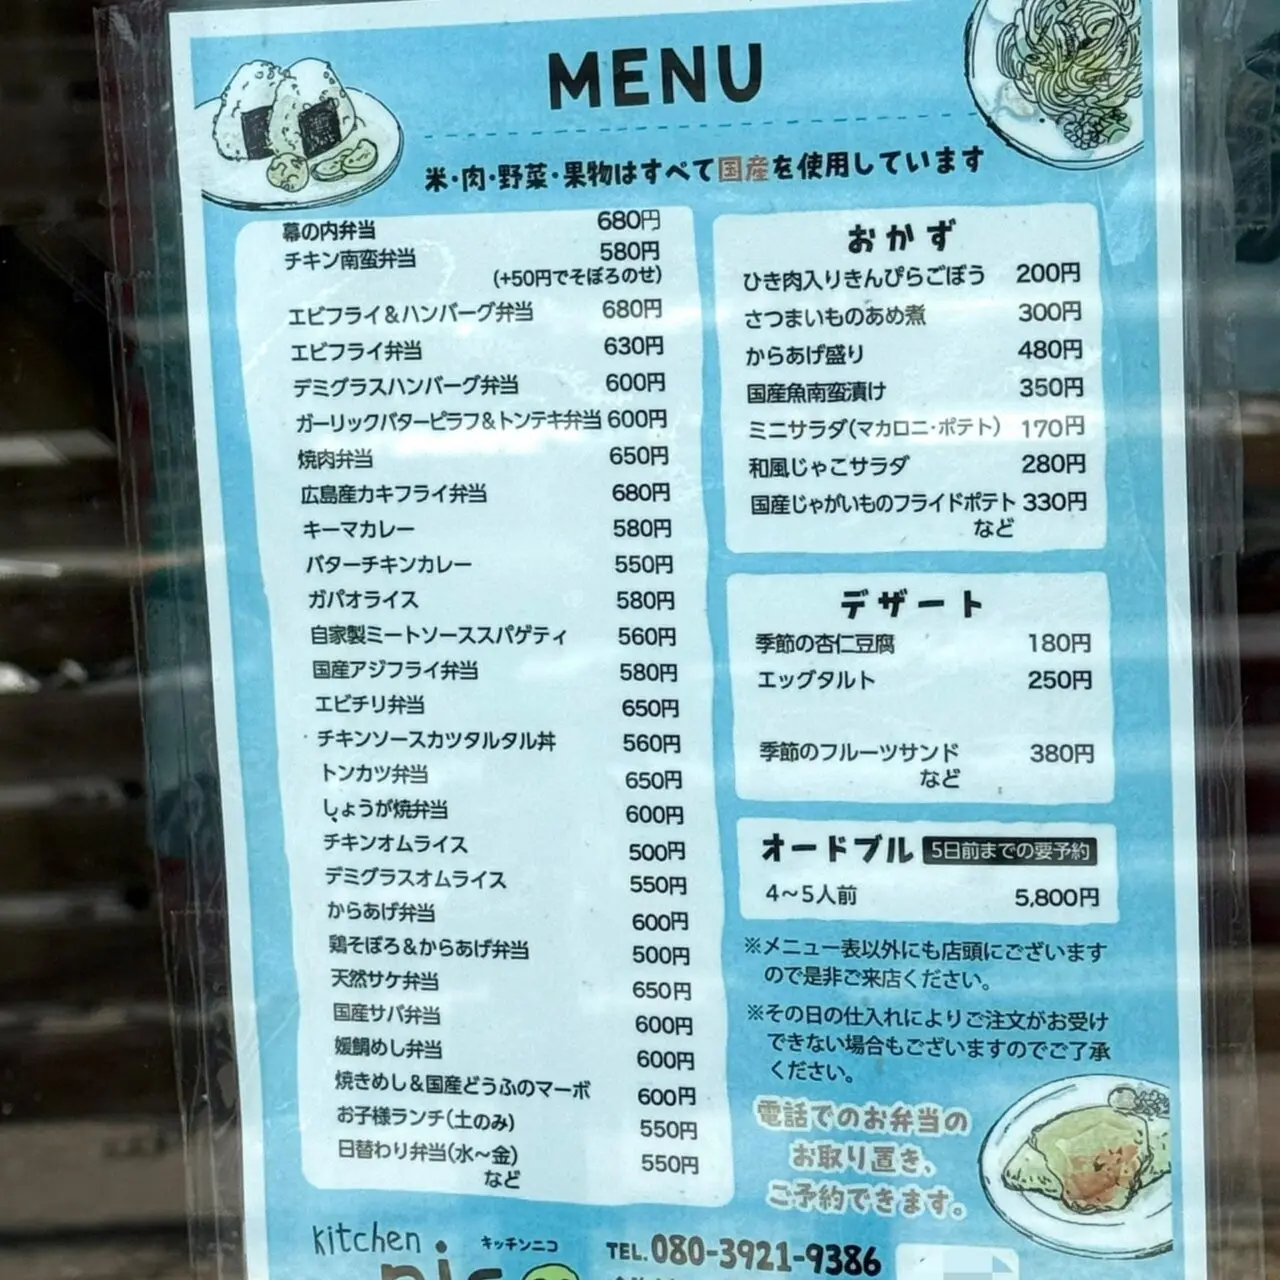 MENU
米・肉・野菜・果物はすべて国産を使用しています
幕の内弁当 680円
チキン南蛮弁当 580円
(+50円でそぼろのせ)
エビフライ&ハンバーグ弁当 680円
エビフライ弁当 630円
デミグラスハンバーグ弁当 600円
ガーリックバターピラフ&トンテキ弁当 600円
焼肉弁当 650円
広島産カキフライ弁当 680円
キーマカレー 580円
バターチキンカレー 550円
ガパオライス 580円
自家製ミートソーススパゲティ 560円
国産アジフライ弁当 580円
エビチリ弁当 650円
チキンソースカツタルタル丼 560円
トンカツ弁当 650円
しょうが焼弁当 600円
チキンオムライス 500円
デミグラスオムライス 550円
からあげ弁当 600円
鶏そぼろ&からあげ弁当 500円
天然サケ弁当 650円
国産サバ弁当 600円
媛鯛めし弁当 600円
焼きめし&国産どうふのマーボ 600円
お子様ランチ(土のみ) 550円
日替わり弁当(水~金) 550円
など
おかず
ひき肉入りきんぴらごぼう 200円
さつまいものあめ煮 300円
からあげ盛り 480円
国産魚南蛮漬け 350円
ミニサラダ(マカロニ・ポテト) 170円
和風じゃこサラダ 280円
国産じゃがいものフライドポテト 330円
など
デザート
季節の杏仁豆腐 180円
エッグタルト 250円
季節のフルーツサンド 380円
など
オードブル 5日前までの要予約
4~5人前 5,800円
※メニュー表以外にも店頭にございます
ので是非ご来店ください。
※その日の仕入れによりご注文がお受け
できない場合もございますのでご了承
ください。
電話でのお弁当の
お取り置き、
ご予約できます。
kitchen キッチンニコ
TEL.080-3921-9386